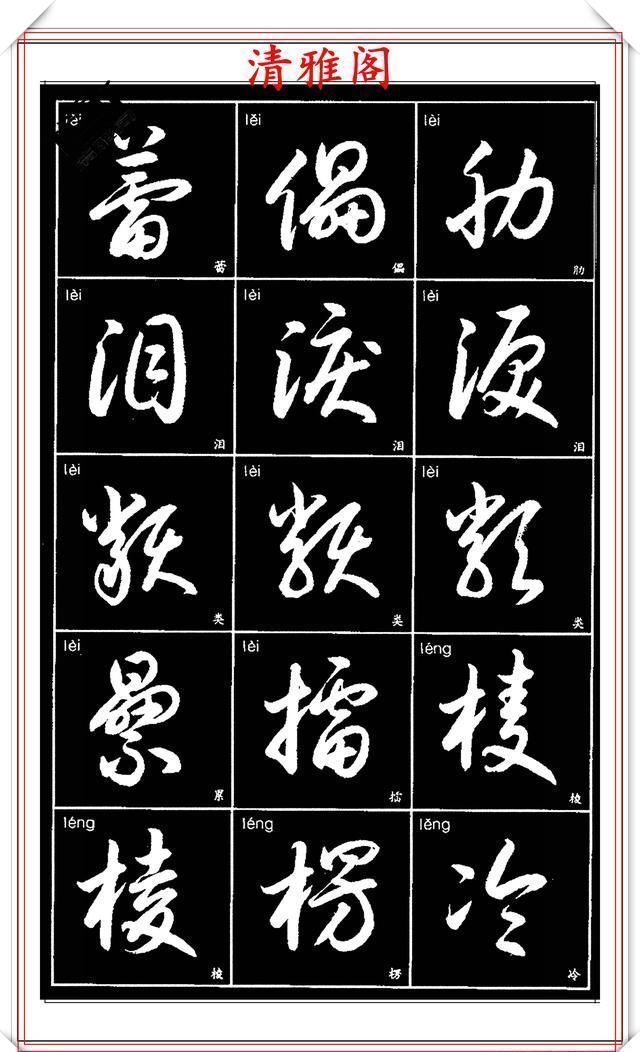 清雅阁
lěi lěi lèi
蕾 儡 肋
蕾 儡 肋
lèi lèi lèi
泪 淚 泪
泪 泪 泪
lèi lèi lèi
類 類 類
类 类 类
lèi lèi léng
纍 擂 棱
累 擂 棱
léng léng lěng
棱 楞 冷
棱 楞 冷